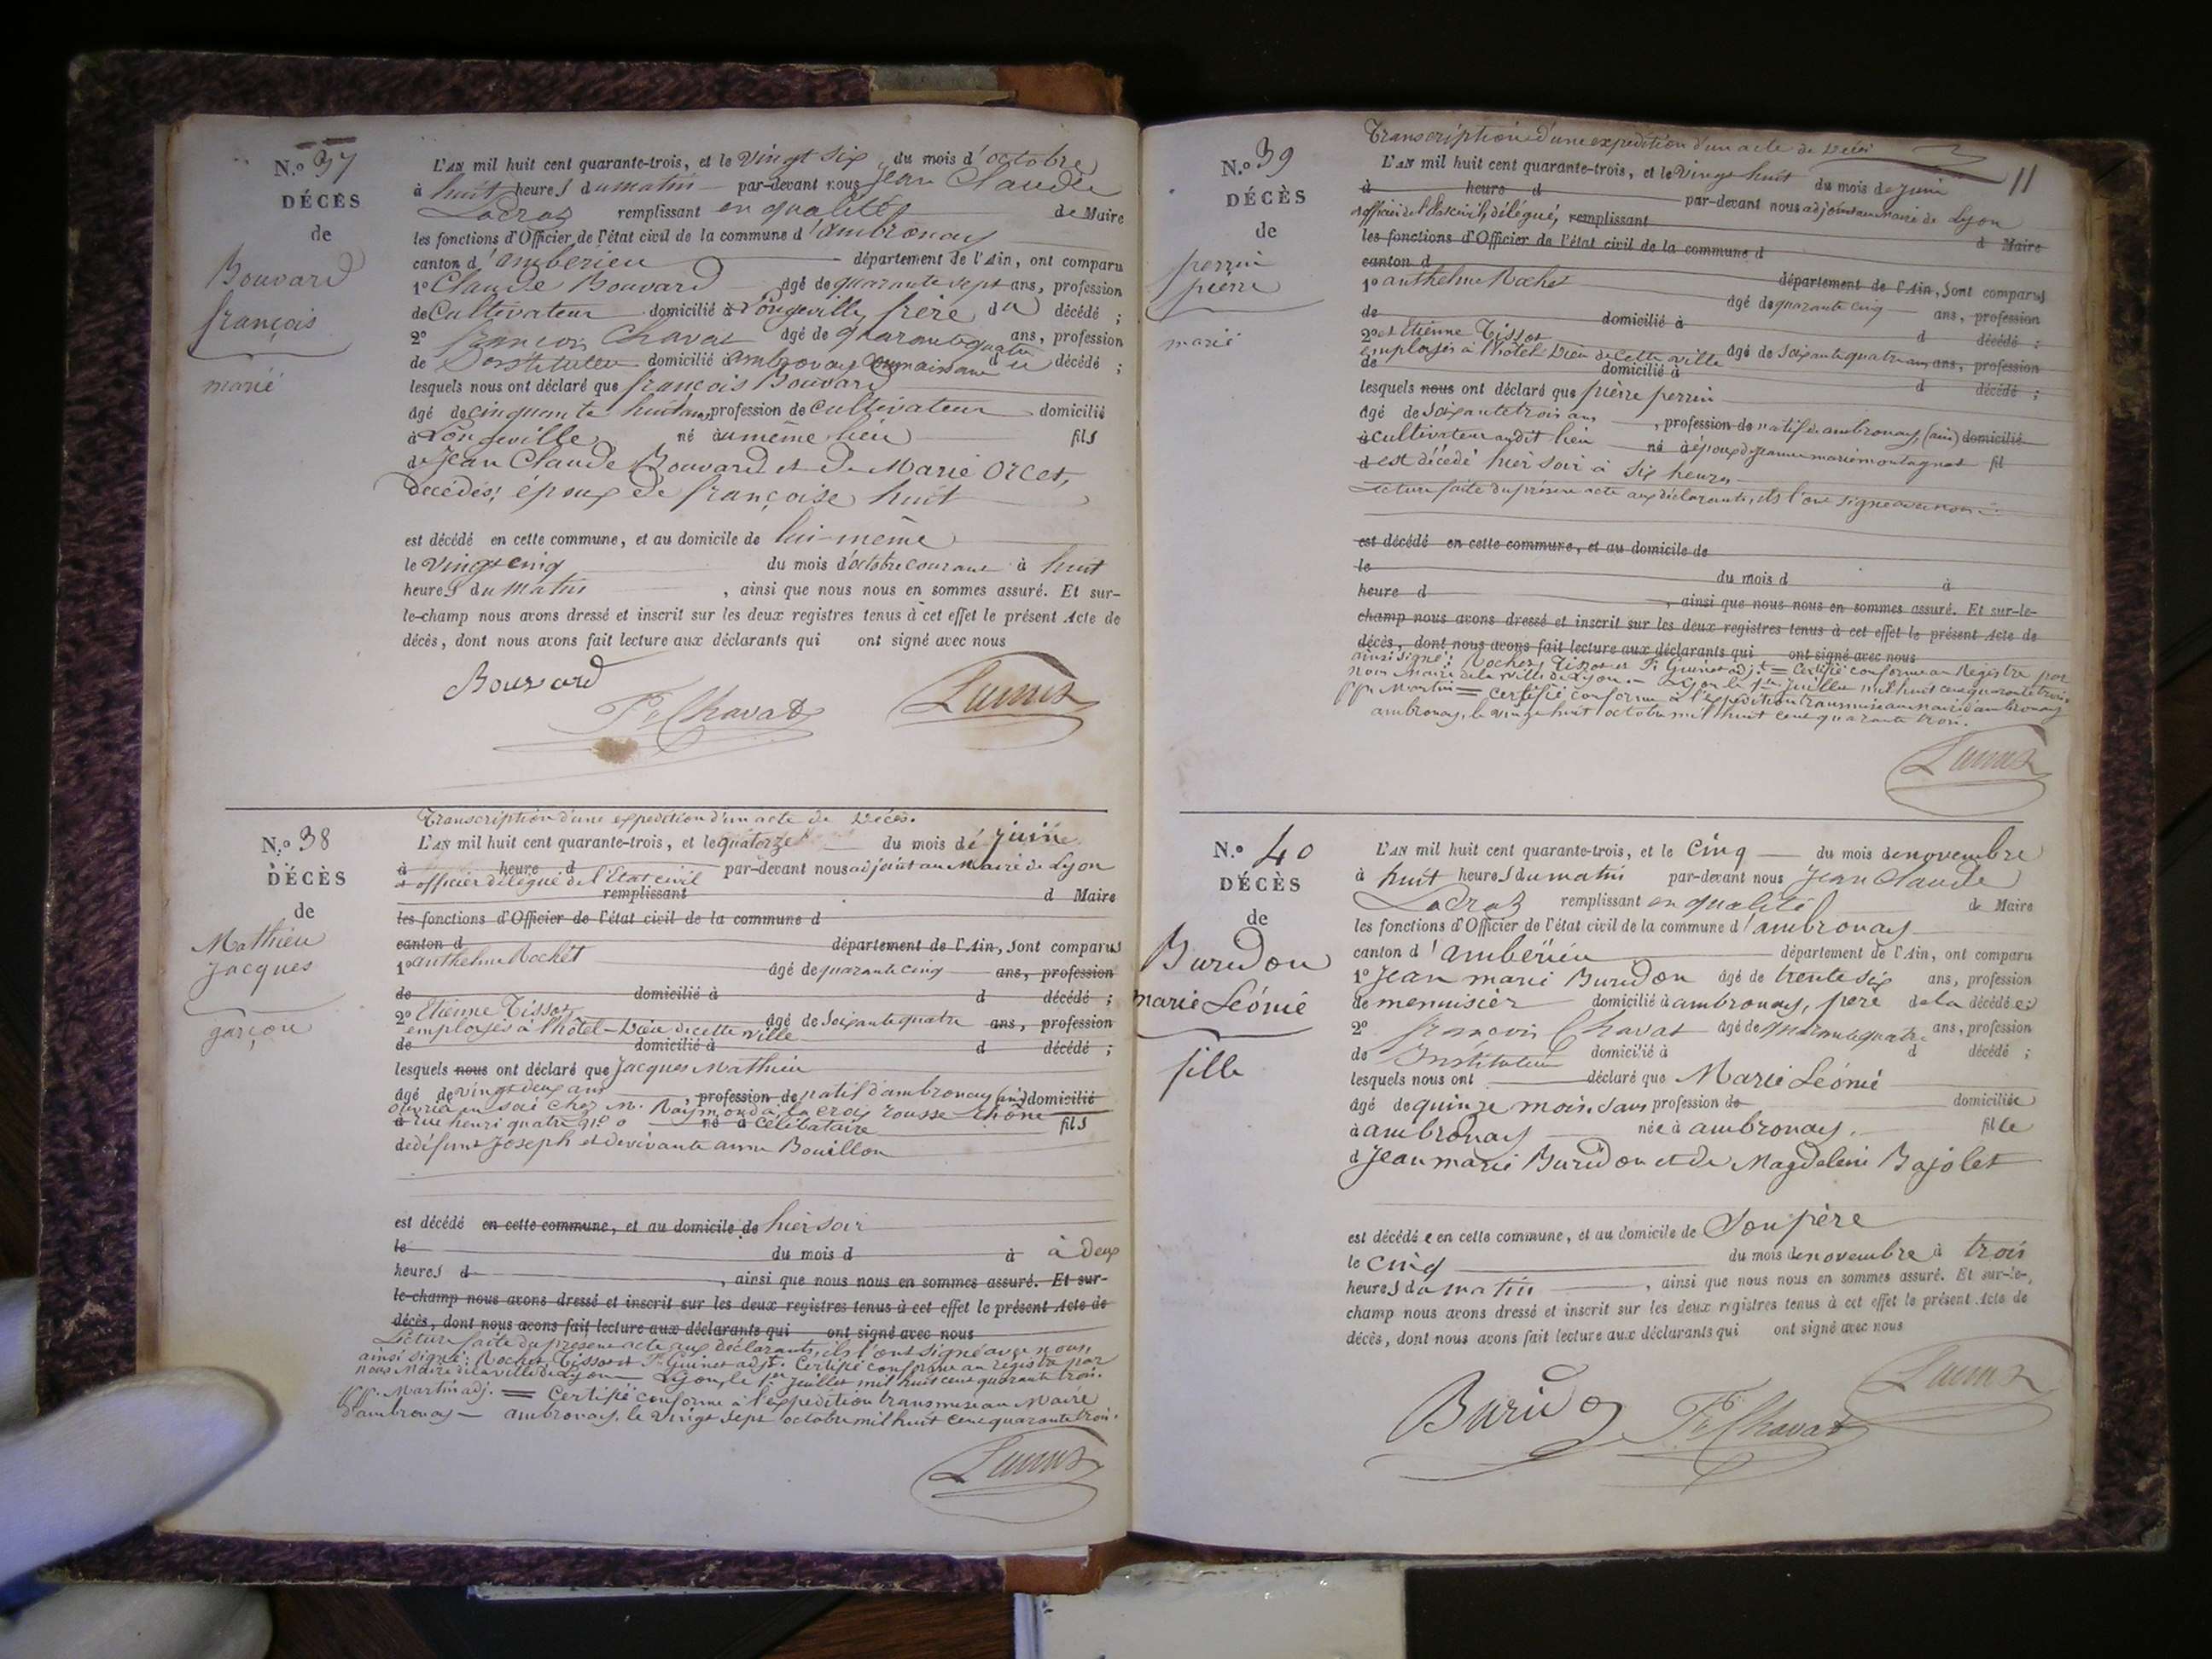 N.º 37
DÉCÈS
de
Bouvard
françois
marié
L'AN mil huit cent quarante-trois, et le vingt six du mois d'octobre
à huit heures du matin par-devant nous Jean Claude
Ladraz remplissant en qualité de Maire
les fonctions d'Officier de l'état civil de la commune d'ambronay
canton d'amberieu département de l'Ain, ont comparu
1º Claude Bouvard âgé de quarante sept ans, profession
de Cultivateur domicilié à Longeville, frère du décédé ;
2º françois Chavat âgé de quarante quatre ans, profession
de Instituteur domicilié à ambronay connaissance du décédé ;
lesquels nous ont déclaré que françois Bouvard
âgé de cinquante huit ans, profession de Cultivateur domicilié
à Longeville né au même lieu fils
de Jean Claude Bouvard et de Marie Orcet,
décédés; époux de françoise huit
est décédé en cette commune, et au domicile de lui-même
le vingt cinq du mois d'octobre courant à huit
heures du matin, ainsi que nous nous en sommes assuré. Et sur-
le-champ nous avons dressé et inscrit sur les deux registres tenus à cet effet le présent Acte de
décès, dont nous avons fait lecture aux déclarants qui ont signé avec nous
Bouvard
Fs Chavat
N.º 38
DÉCÈS
de
Mathieu
Jacques
garçon
Transcription d'une expédition d'un acte de Décès.
L'AN mil huit cent quarante-trois, et le quatorze du mois de juin
à heure d par-devant nous adjoint au Maire de Lyon
et officier délégué de l'Etat civil
remplissant d Maire
les fonctions d'Officier de l'état civil de la commune d
canton d département de l'Ain, sont comparus
1º anthelme Rochet âgé de quarante cinq ans, profession
de domicilié à d décédé ;
2º Etienne Tissot âgé de soixante quatre ans, profession
employés à l'hôtel-Dieu de cette ville
de domicilié à d décédé ;
lesquels nous ont déclaré que Jacques Mathieu
âgé de vingt deux ans, profession de natif d'ambronay (ain) domicilié
ouvrier en soie chez M. Raymond à la croix rousse Rhône
à rue henri quatre nº 0 né à célibataire fils
de défunt Joseph et de vivante anne Bouillon
est décédé en cette commune, et au domicile de hier soir
le du mois d à à deux
heures d, ainsi que nous nous en sommes assuré. Et sur-
le-champ nous avons dressé et inscrit sur les deux registres tenus à cet effet le présent Acte de
décès, dont nous avons fait lecture aux déclarants qui ont signé avec nous
Lecture faite du présent acte aux déclarants, ils l'ont signé avec nous,
ainsi signé: Rochet, Tissot et F. Guinet adjt. Certifié conforme au registre par
nous Maire de la ville de Lyon — Lyon, le 1er juillet mil huit cent quarante trois.
Martin adj. = Certifié conforme à l'expédition transmise au Maire
d'ambronay — ambronay, le vingt sept octobre mil huit cent quarante trois.
N.º 39
DÉCÈS
de
perrin
pierre
marié
11
Transcription d'une expédition d'un acte de Décès
L'AN mil huit cent quarante-trois, et le vingt huit du mois de juin
à heure d par-devant nous adjoint au maire de Lyon
et officier de l'état civil, délégué, remplissant d Maire
les fonctions d'Officier de l'état civil de la commune d
canton d département de l'Ain, sont comparus
1º anthelme Rochet âgé de quarante cinq ans, profession
de domicilié à d décédé ;
2º et Etienne Tissot âgé de soixante quatre ans, ans, profession
employés à l'hôtel Dieu de cette ville
de domicilié à d décédé ;
lesquels nous ont déclaré que pierre perrin
âgé de soixante trois ans, profession de natif de ambronay, (ain) domicilié
à cultivateur audit lieu né à époux de jeanne marie montagnat fil
d est décédé hier soir à six heures
Lecture faite du présent acte aux déclarants, ils l'ont signé avec nous.
est décédé en cette commune, et au domicile de
le du mois d à
heure d, ainsi que nous nous en sommes assuré. Et sur-le-
champ nous avons dressé et inscrit sur les deux registres tenus à cet effet le présent Acte de
décès, dont nous avons fait lecture aux déclarants qui ont signé avec nous
ainsi signé: Rochet, Tissot et F. Guinet adj.t = Certifié conforme au Registre par
nous Maire de la ville de Lyon. — Lyon le 1er juillet mil huit cent quarante trois.
Martin = Certifié conforme à l'expédition transmise au maire d'ambronay
ambronay, le vingt huit octobre mil huit cent quarante trois.
N.º 40
DÉCÈS
de
Buridon
marie Léonie
fille
L'AN mil huit cent quarante-trois, et le cinq du mois de novembre
à huit heures du matin par-devant nous Jean Claude
Ladraz remplissant en qualité de Maire
les fonctions d'Officier de l'état civil de la commune d'ambronay
canton d'ambérieu département de l'Ain, ont comparu
1º Jean marie Buridon âgé de trente six ans, profession
de menuisier domicilié à ambronay, père de la décédée ;
2º françois Chavat âgé de quarante quatre ans, profession
de Instituteur domicilié à d décédé ;
lesquels nous ont déclaré que Marie Léonie
âgé de quinze mois, sans profession de domiciliée
à ambronay née à ambronay fille
d Jean marie Buridon et de Magdeleine Bajolet
est décédée en cette commune, et au domicile de Son père
le cinq du mois de novembre à trois
heures du matin, ainsi que nous nous en sommes assuré. Et sur-le-
champ nous avons dressé et inscrit sur les deux registres tenus à cet effet le présent Acte de
décès, dont nous avons fait lecture aux déclarants qui ont signé avec nous
Buridon
Fs Chavat